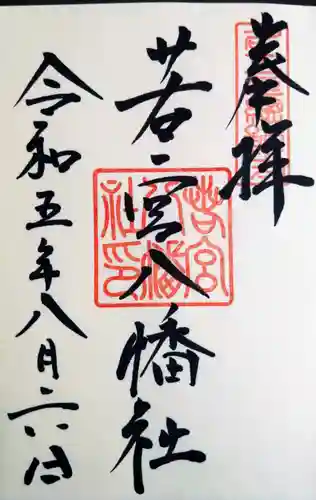 奉拝
若宮八幡社
令和五年八月二六日
若宮
八幡
社印